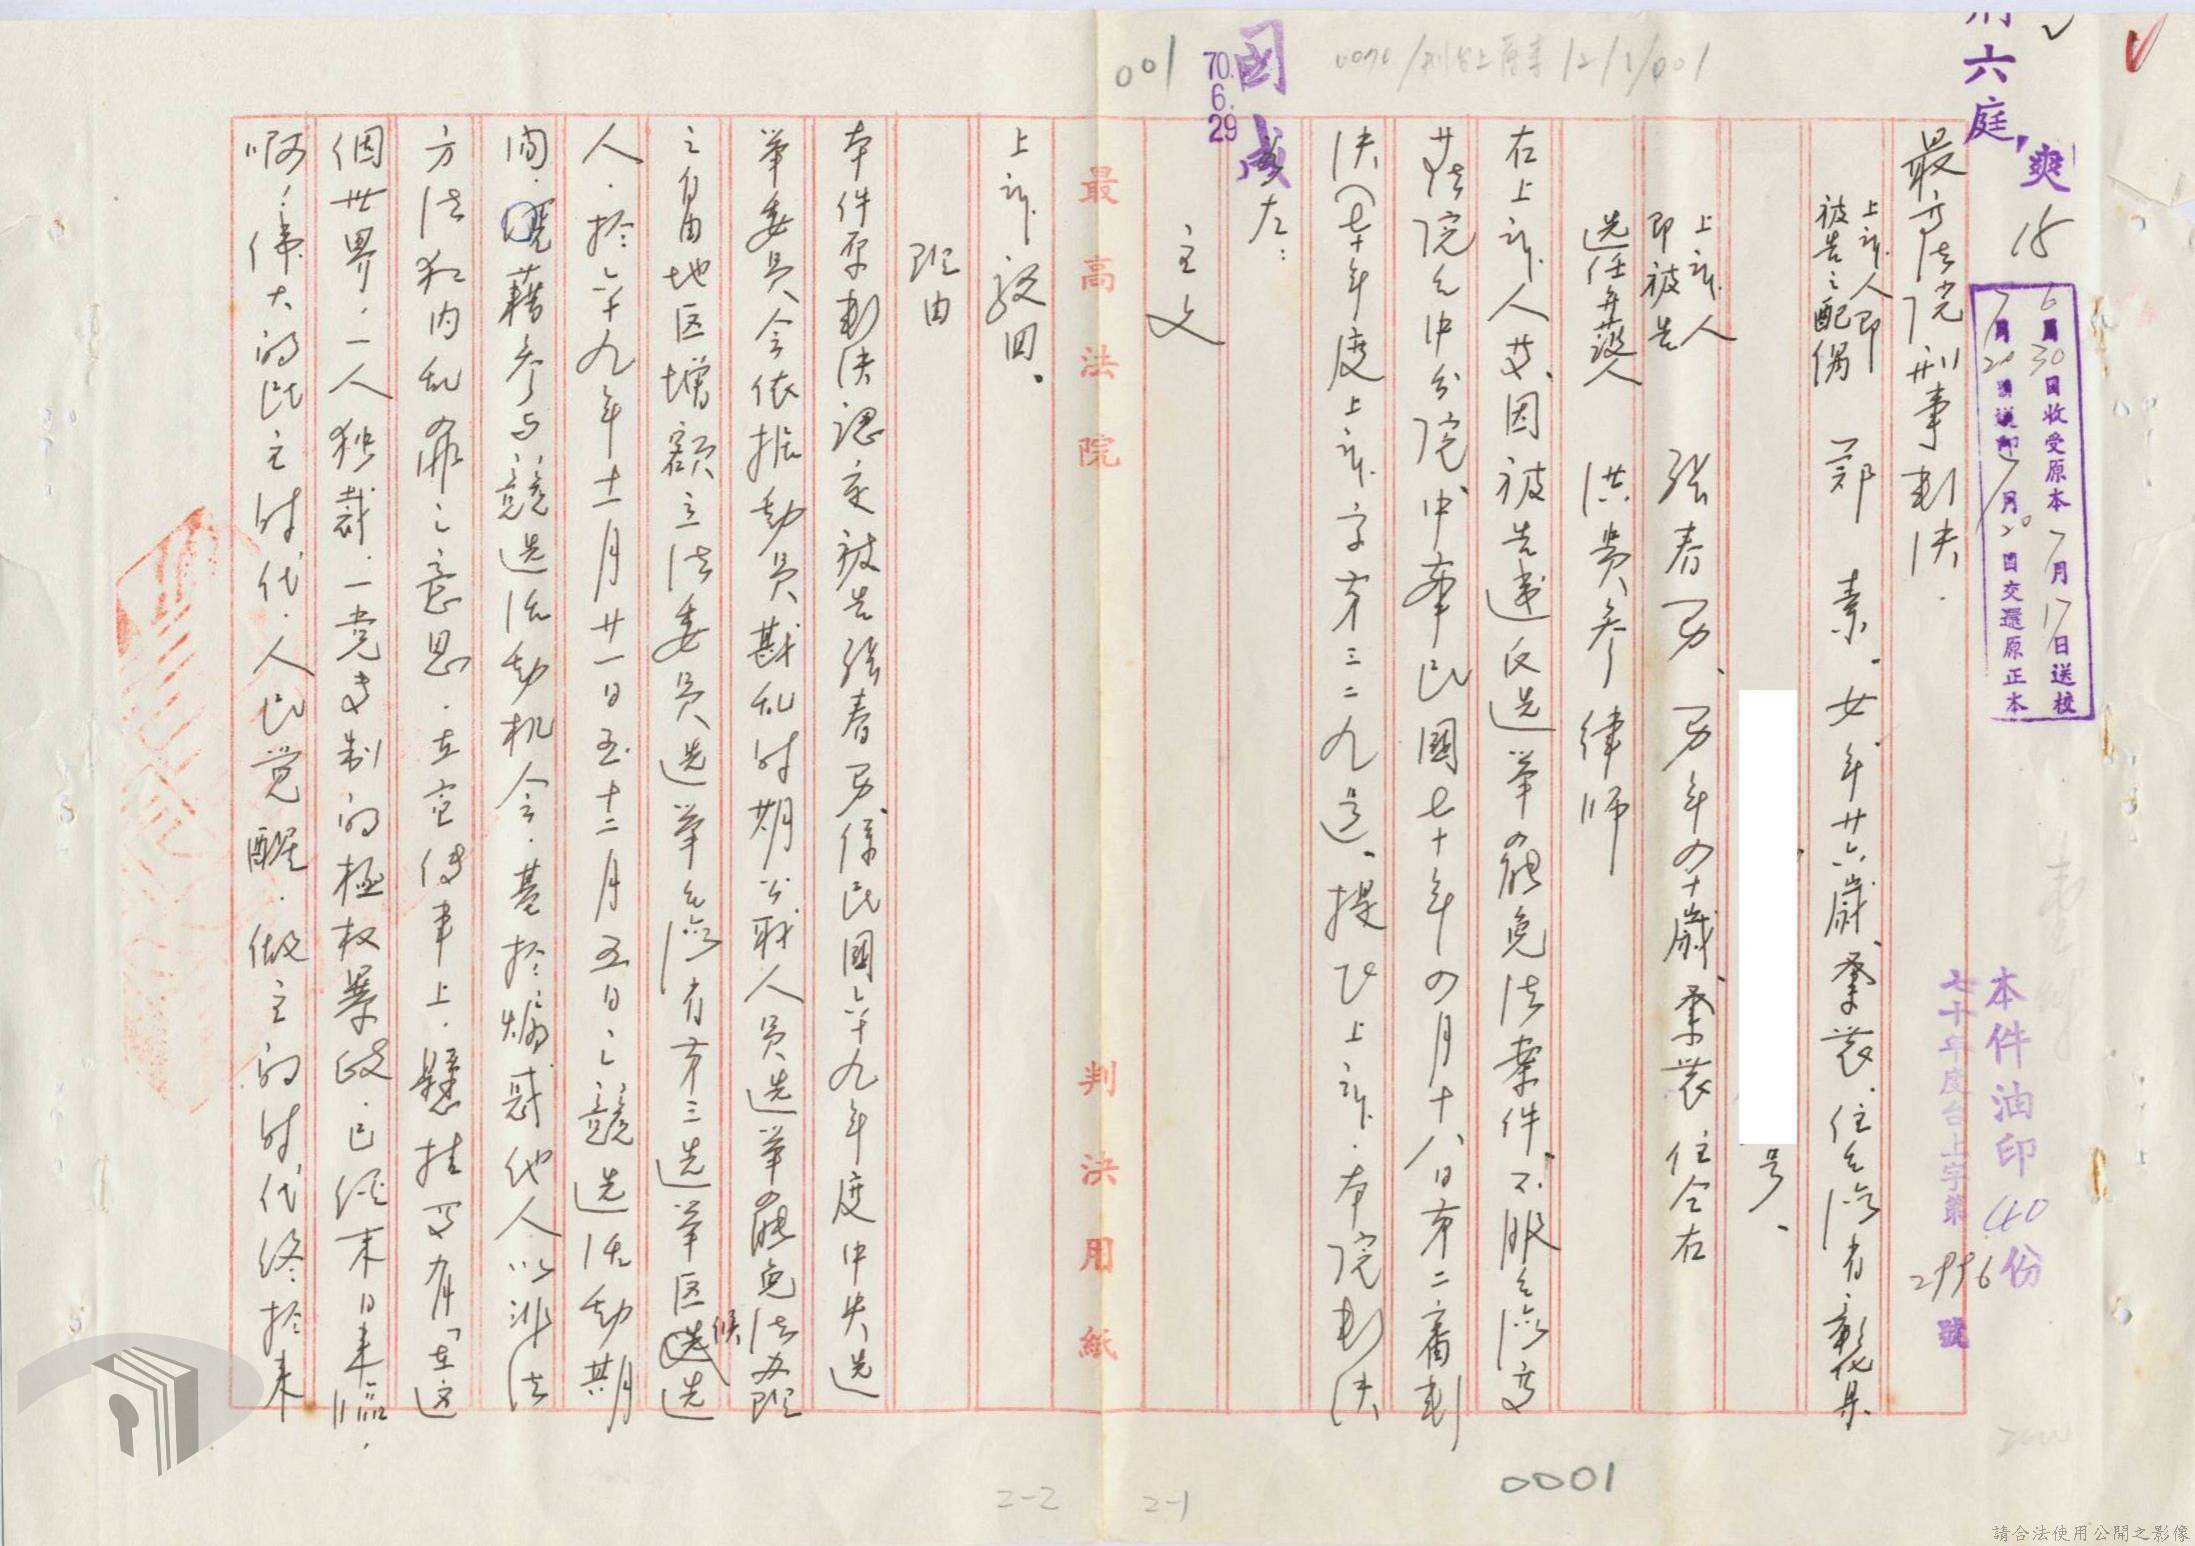 刑六庭
爽
15
6月30日收受原本7月17日送校
7月20日送印7月20日交還原正本
本件油印40份
七十年度台上字第2996號
0070/刑台上原本/2/1/001
001
國成
70.6.29
最高法院刑事判決
上訴人即
被告之配偶 鄭 素、女年廿六歲、業農、住台灣省彰化县
号、
上訴人
即被告 張春男、男年四十歲、業農 住仝右
選任弁護人 洪貴參律师
右上訴人等、因被告違反选举罷免法案件、不服台灣高
等法院台中分院、中華民國七十年四月十八日第二審判
決(七十年度上訴字第三二九号、提起上訴、本院判決
如左：
主文
上訴駁回。
理由
最高法院 判決用紙
本件原判決認定被告張春男、係民國六十九年度中央选
举委員会依据動員戡乱时期公职人員选举罷免法办理
之自由地区增額立法委員选举台灣省第三选举区候选
人、於六十九年十一月廿一日至十二月五日之競选活動期
間、藉参与競选活動机会、基於煽惑他人以非法
方法犯内乱罪之意思、在宣传車上、懸挂写有「在这
個世界、一人独裁、一党专制的極权暴政、已经末日来臨、
啊！偉大的民主时代、人民觉醒、做主的时代终於来
0001
2-2
2-1
請合法使用公開之影像